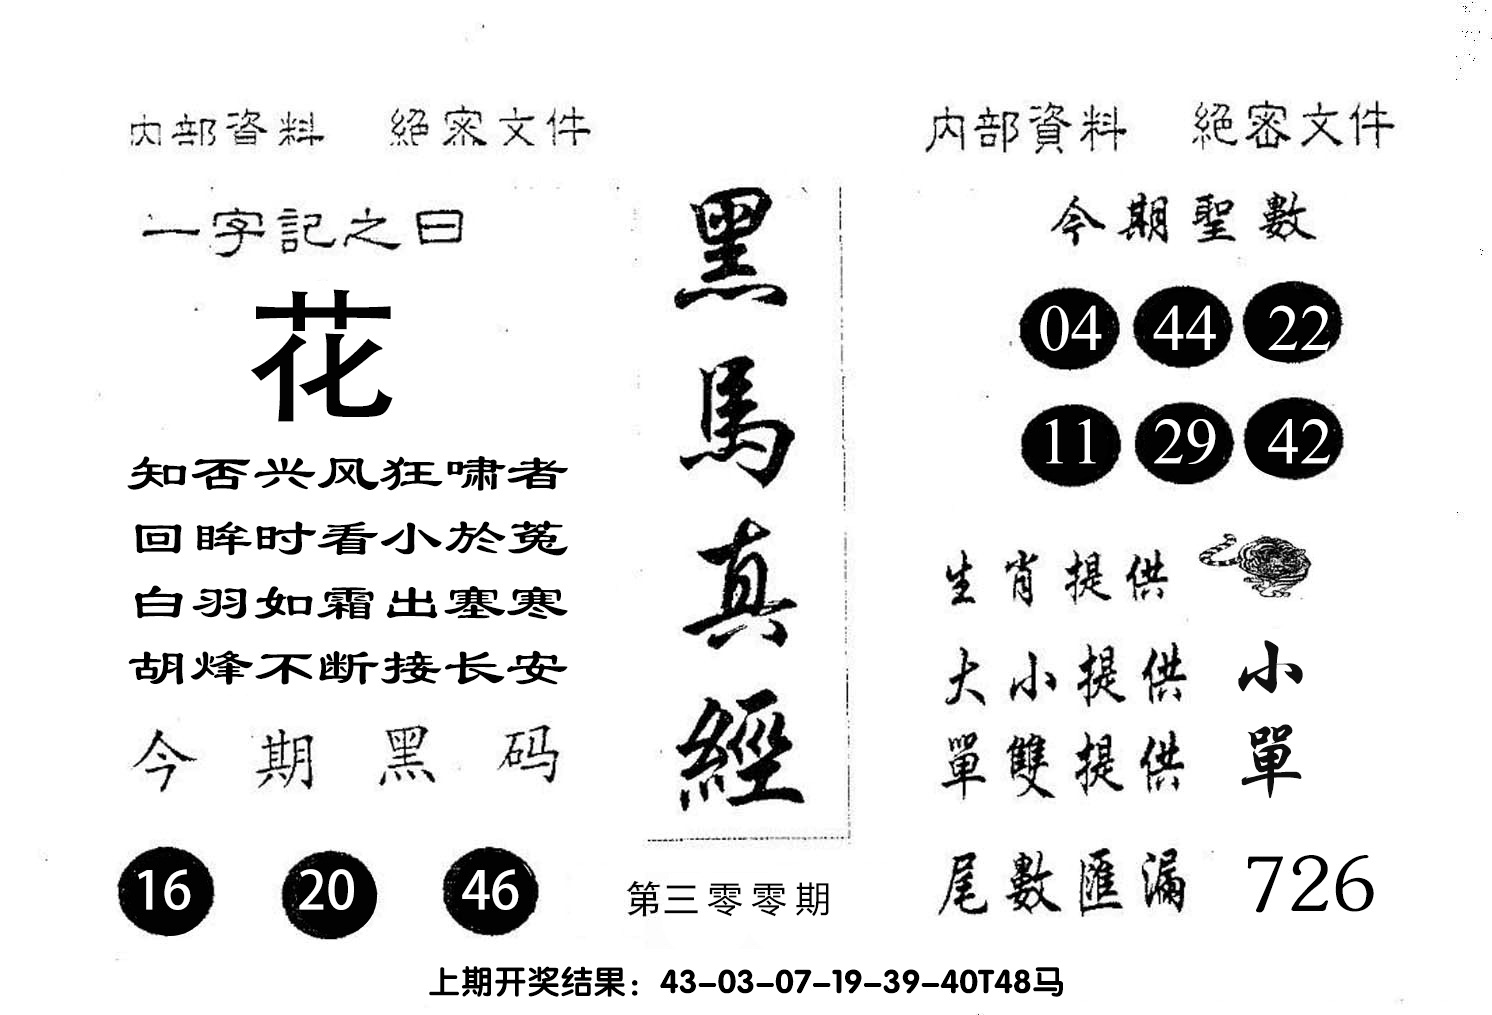 内部資料 絕密文件
一字記之曰
花
知否兴风狂啸者
回眸时看小於菟
白羽如霜出塞寒
胡烽不断接长安
今期黑码
16 20 46
黑馬真經
第三零零期
内部資料 絕密文件
今期聖數
04 44 22
11 29 42
生肖提供
大小提供 小
單雙提供 單
尾數匯漏 726
上期开奖结果：43-03-07-19-39-40T48马